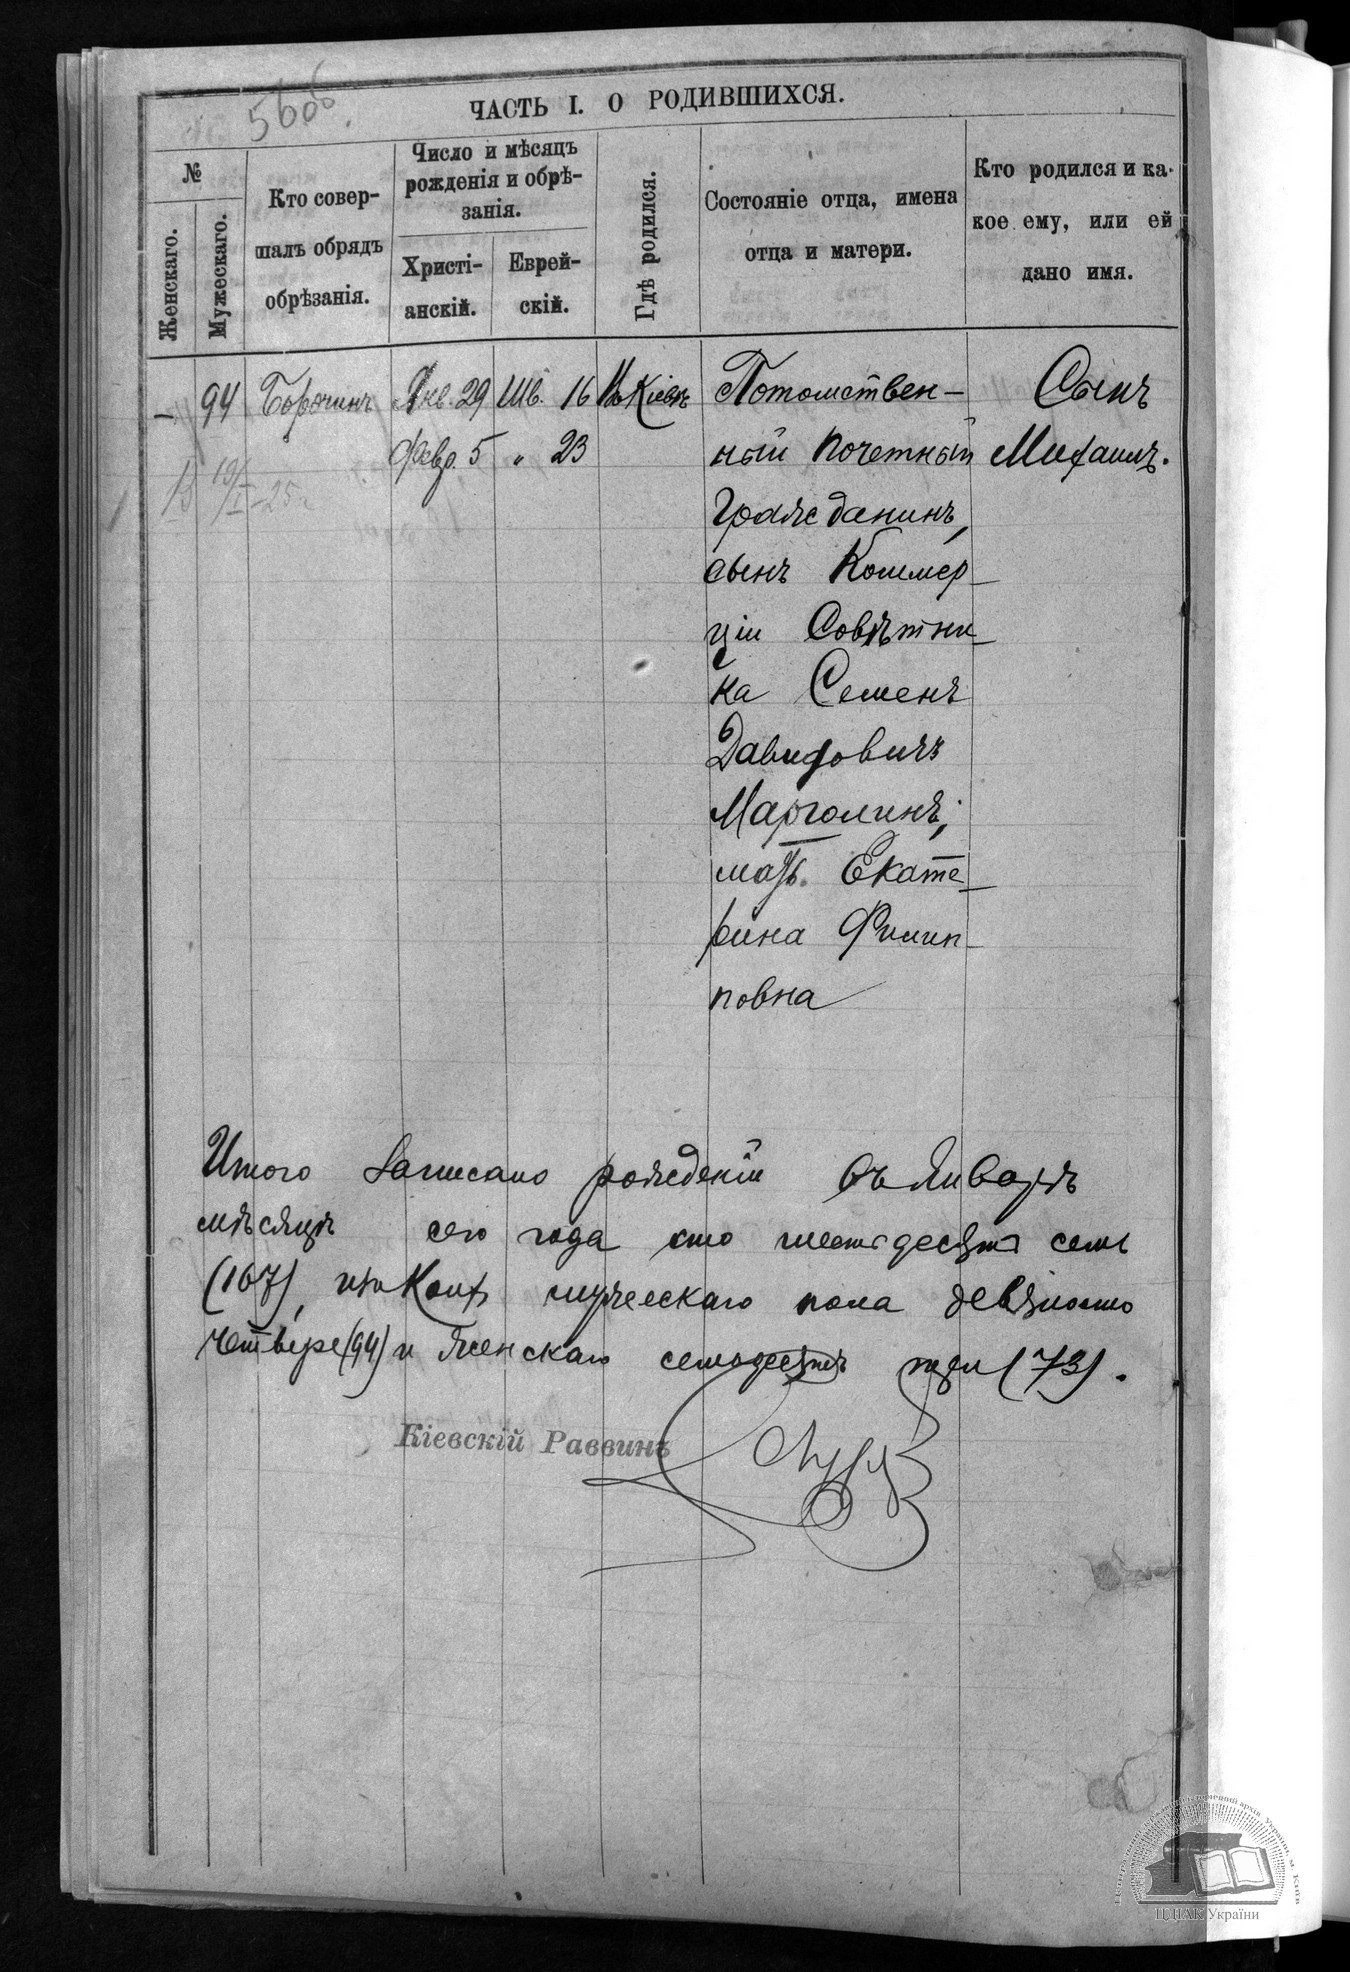 560б.
ЧАСТЬ I. О РОДИВШИХСЯ.
№
Женскаго.
Мужескаго.
Кто совер-
шалъ обрядъ
обрѣзанія.
Число и мѣсяцъ
рожденія и обрѣ-
занія.
Христі-
анскій.
Еврей-
скій.
Гдѣ родился.
Состояніе отца, имена
отца и матери.
Кто родился и ка-
кое ему, или ей
дано имя.
94
Янв. 29
Шв. 16
Въ Кіевѣ
Февр. 5
„ 23
Потомствен-
ный Почетный
Гражданинъ,
сынъ Коммер-
ціи Совѣтни-
ка Семенъ
Давидовичъ
Марголинъ,
мать Екате-
рина Филип-
повна
Сынъ
Михаилъ.
Итого записано рожденій въ Январѣ
мѣсяцѣ сего года сто шестьдесятъ семь
(167), изъ коихъ мужескаго пола девяносто
четыре (94) и женскаго семьдесятъ три (73).
Кіевскій Раввинъ
ЦДІАК України